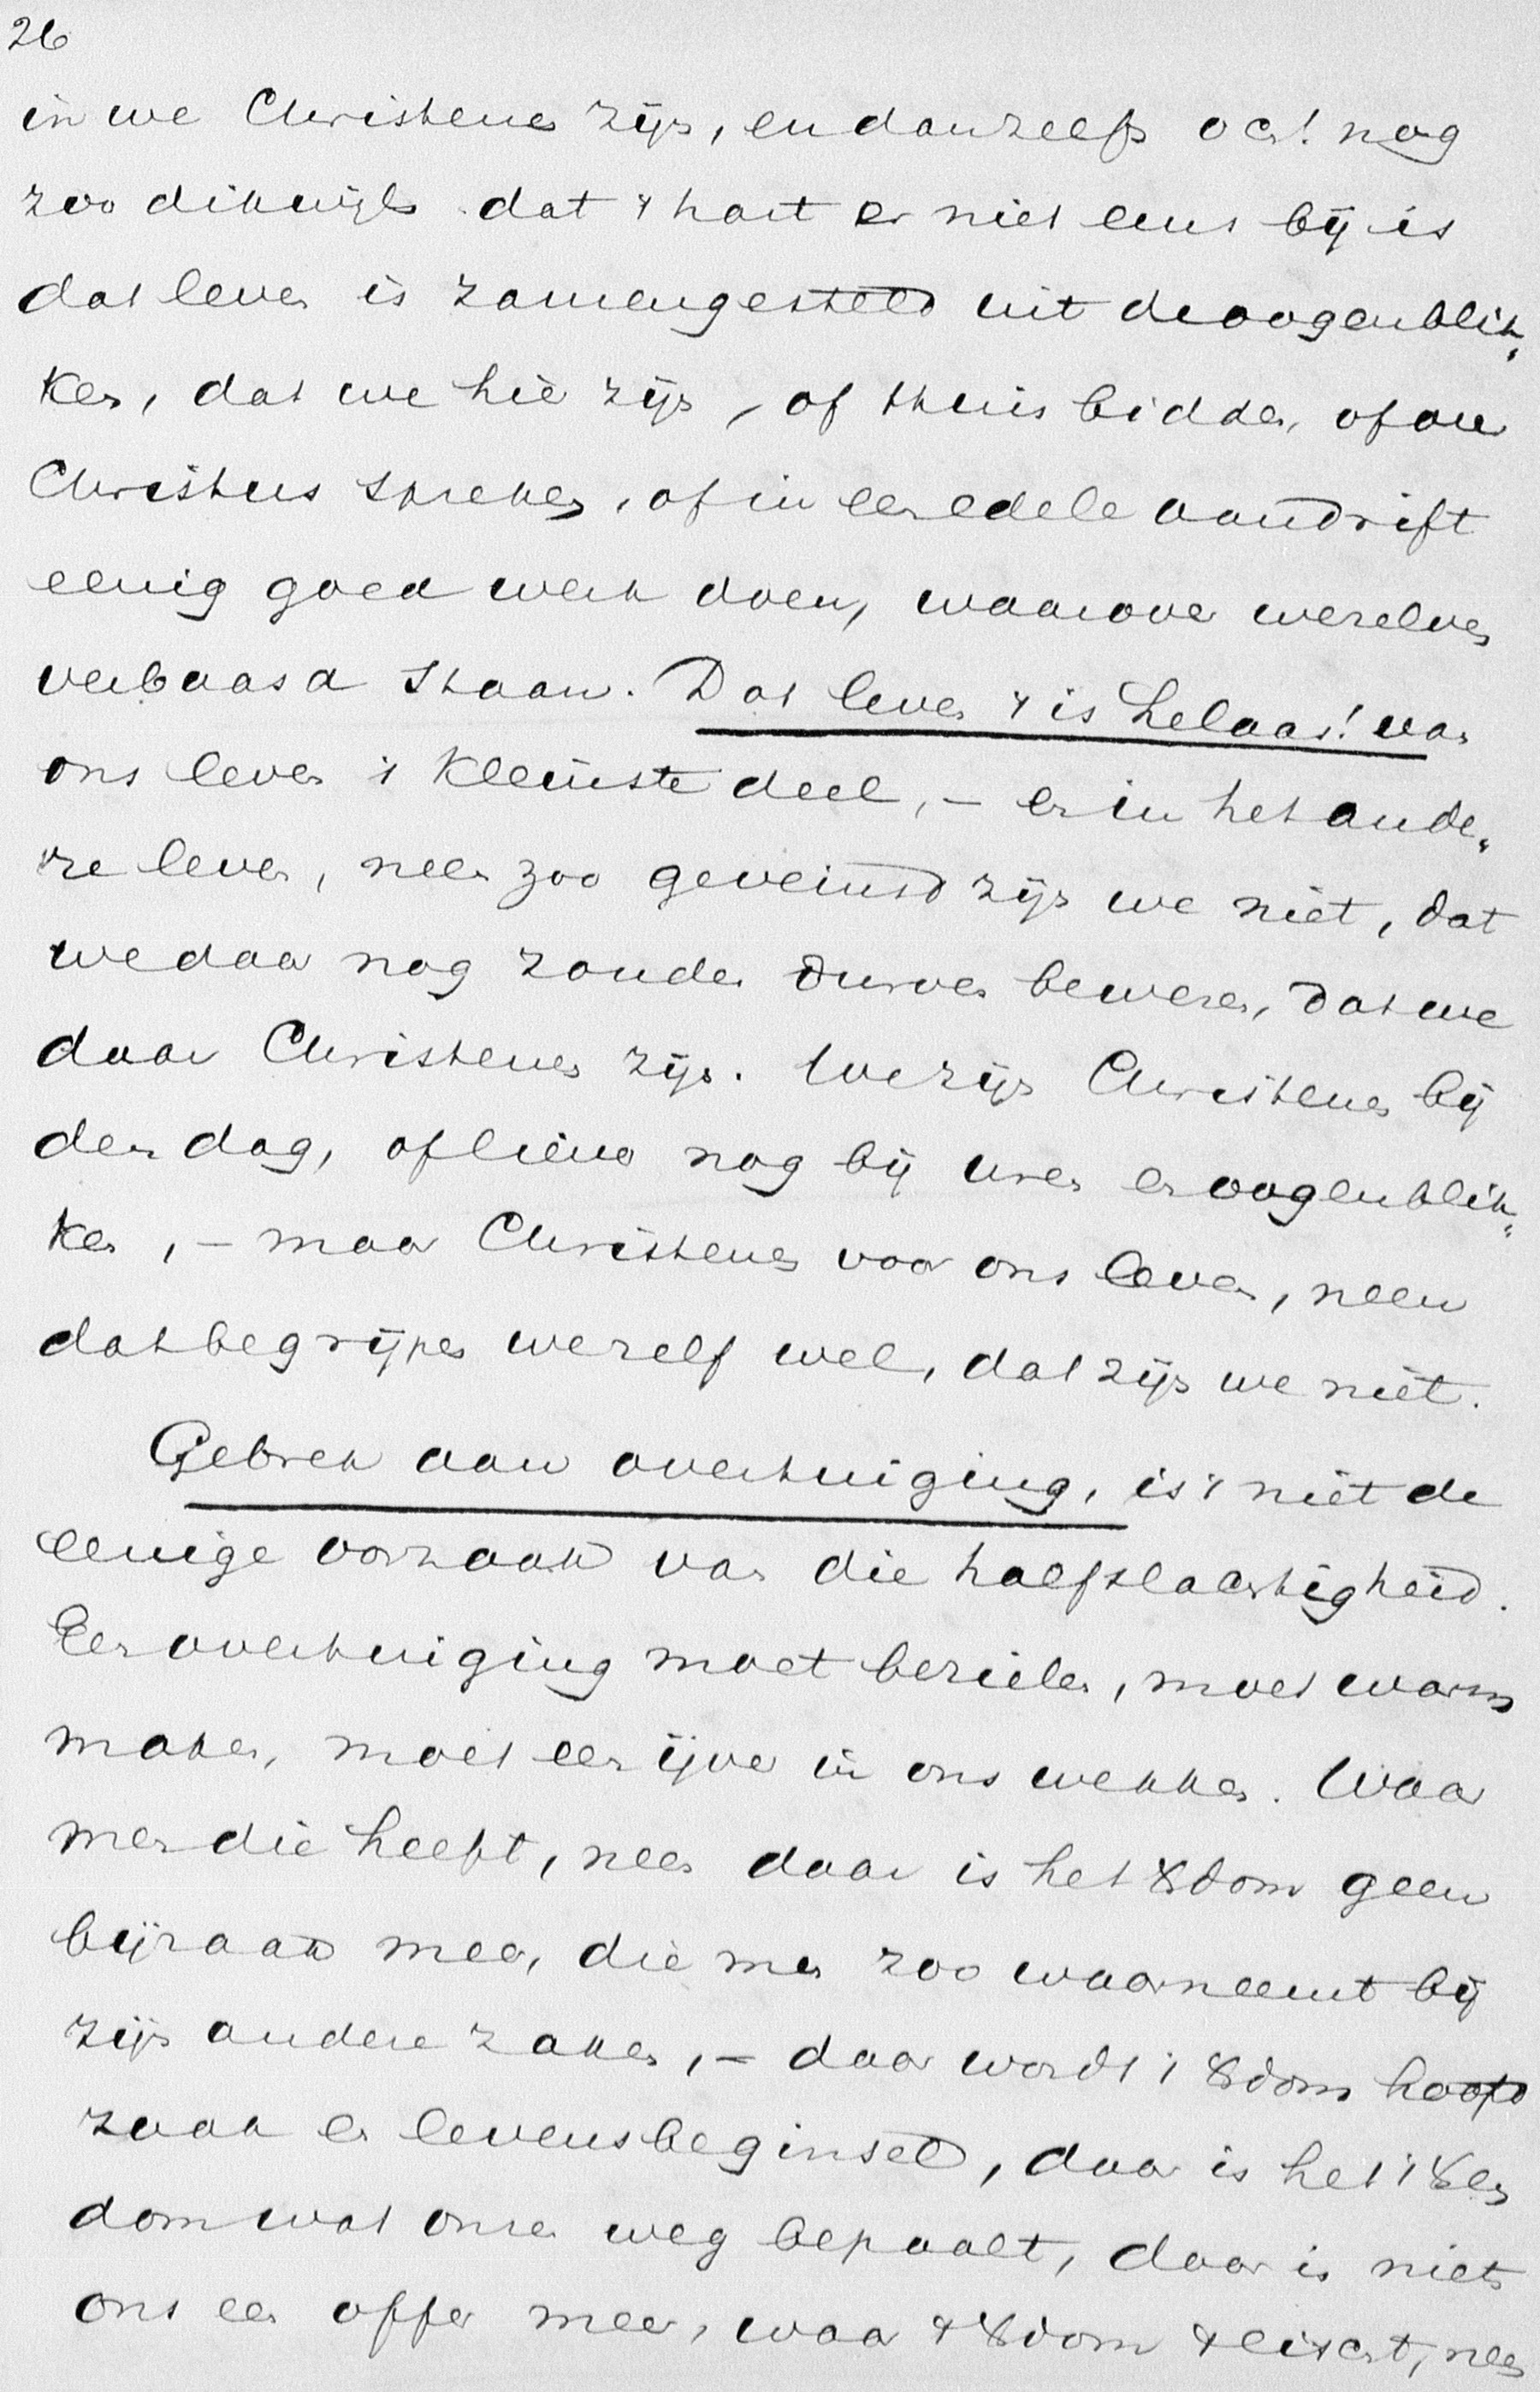 26
in we Christenen zijn, en dan zelfs och! nog
zoo dikwijls dat 't hart er niet eens bij is
dat leven is zamengesteld uit de oogenblik„
ken, dat we hier zijn, of thuis bidden, of over
Christus spreken, of in een edele aandrift
eenig goed werk doen, waarover we zelven
verbaasd staan. Dat leven 't is helaas! van
ons leven 't kleinste deel, – en in het ande„
re leven, neen zoo geveinsd zijn we niet, dat
we daar nog zouden durven beweren, dat we
daar Christenen zijn. We zijn Christenen bij
den dag, of liever nog bij uren en oogenblik„
ken, – maar Christenen voor ons leven, neen
dat begrijpen we zelf wel, dat zijn we niet.
Gebrek aan overtuiging, is 't niet de
eenige oorzaak van die halfslachtigheid.
Een overtuiging moet bezielen, moet warm
maken, moet een ijver in ons wekken. Waar
men die heeft, neen daar is het Xdom geen
bijzaak meer, die men zoo waarneemt bij
zijn andere zaken, – daar wordt 't Xdom hoofd
zaak en levensbeginsel, daar is het 't Xen
dom wat onzen weg bepaalt, daar is niets
ons een offer meer, waar 't Xdom 't eischt, neen